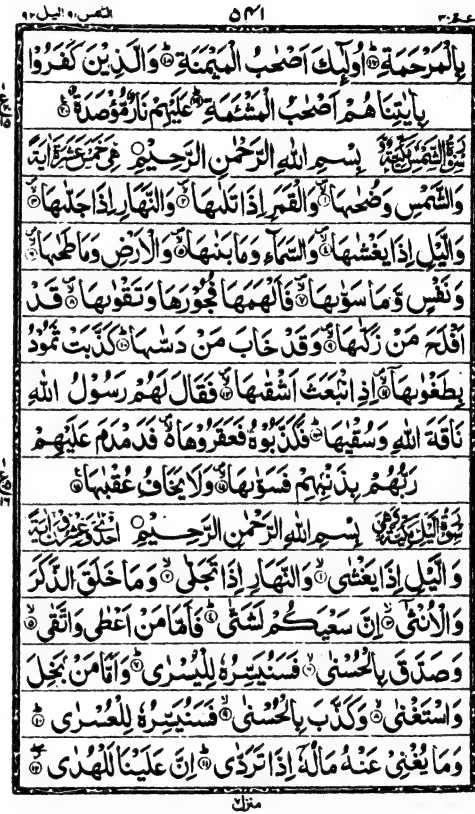 عم ٣٠ ٥٤١ الشمس ٩١ اليل ٩٢
بِالْمَرْحَمَةِ ۝١٧ اُولٰٓئِكَ اَصْحٰبُ الْمَيْمَنَةِ ۝١٨ وَالَّذِيْنَ كَفَرُوْا
بِاٰيٰتِنَا هُمْ اَصْحٰبُ الْمَشْئَمَةِ ۝١٩ عَلَيْهِمْ نَارٌ مُّؤْصَدَةٌ ۝٢٠
سُوْرَةُ الشَّمْسِ مَكِّيَّةٌ بِسْمِ اللهِ الرَّحْمٰنِ الرَّحِيْمِ وَهِيَ خَمْسَ عَشْرَةَ اٰيَةً
وَالشَّمْسِ وَضُحٰىهَا ۝١ وَالْقَمَرِ اِذَا تَلٰىهَا ۝٢ وَالنَّهَارِ اِذَا جَلّٰىهَا ۝٣
وَالَّيْلِ اِذَا يَغْشٰىهَا ۝٤ وَالسَّمَآءِ وَمَا بَنٰىهَا ۝٥ وَالْاَرْضِ وَمَا طَحٰىهَا ۝٦
وَنَفْسٍ وَّمَا سَوّٰىهَا ۝٧ فَاَلْهَمَهَا فُجُوْرَهَا وَتَقْوٰىهَا ۝٨ قَدْ
اَفْلَحَ مَنْ زَكّٰىهَا ۝٩ وَقَدْ خَابَ مَنْ دَسّٰىهَا ۝١٠ كَذَّبَتْ ثَمُوْدُ
بِطَغْوٰىهَآ ۝١١ اِذِ انْۢبَعَثَ اَشْقٰىهَا ۝١٢ فَقَالَ لَهُمْ رَسُوْلُ اللهِ
نَاقَةَ اللهِ وَسُقْيٰهَا ۝١٣ فَكَذَّبُوْهُ فَعَقَرُوْهَا فَدَمْدَمَ عَلَيْهِمْ
رَبُّهُمْ بِذَنْۢبِهِمْ فَسَوّٰىهَا ۝١٤ وَلَا يَخَافُ عُقْبٰهَا ۝١٥
سُوْرَةُ الَّيْلِ مَكِّيَّةٌ وَهِيَ بِسْمِ اللهِ الرَّحْمٰنِ الرَّحِيْمِ اِحْدٰى وَعِشْرُوْنَ اٰيَةً
وَالَّيْلِ اِذَا يَغْشٰى ۝١ وَالنَّهَارِ اِذَا تَجَلّٰى ۝٢ وَمَا خَلَقَ الذَّكَرَ
وَالْاُنْثٰٓى ۝٣ اِنَّ سَعْيَكُمْ لَشَتّٰى ۝٤ فَاَمَّا مَنْ اَعْطٰى وَاتَّقٰى ۝٥
وَصَدَّقَ بِالْحُسْنٰى ۝٦ فَسَنُيَسِّرُهٗ لِلْيُسْرٰى ۝٧ وَاَمَّا مَنْۢ بَخِلَ
وَاسْتَغْنٰى ۝٨ وَكَذَّبَ بِالْحُسْنٰى ۝٩ فَسَنُيَسِّرُهٗ لِلْعُسْرٰى ۝١٠
وَمَا يُغْنِيْ عَنْهُ مَالُهٗٓ اِذَا تَرَدّٰى ۝١١ اِنَّ عَلَيْنَا لَلْهُدٰى ۝١٢
منزل ٧